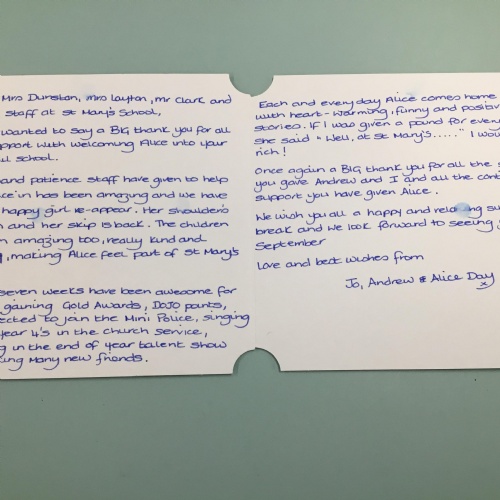 Mrs Dunstan, Mrs Layton, Mr Clark and
staff at St Mary's School,
wanted to say a BIG thank you for all
support with welcoming Alice into your
school.
and patience staff have given to help
has been amazing and we have
happy girl re-appear. Her shoulders
and her skip is back. The children
amazing too, really kind and
, making Alice feel part of St Mary's
seven weeks have been awesome for
gaining Gold Awards, DoJo points,
to join the Mini Police, singing
year 4's in the church service,
in the end of year talent show
many new friends.
Each and every day Alice comes home
with heart-warming, funny and positive
stories. If I was given a pound for every
she said "Well, at St Mary's....." I would
rich!
Once again a BIG thank you for all the
you gave Andrew and I and all the
support you have given Alice.
We wish you all a happy and relaxing
break and we look forward to seeing
September
Love and best wishes from
Jo, Andrew & Alice Day
x